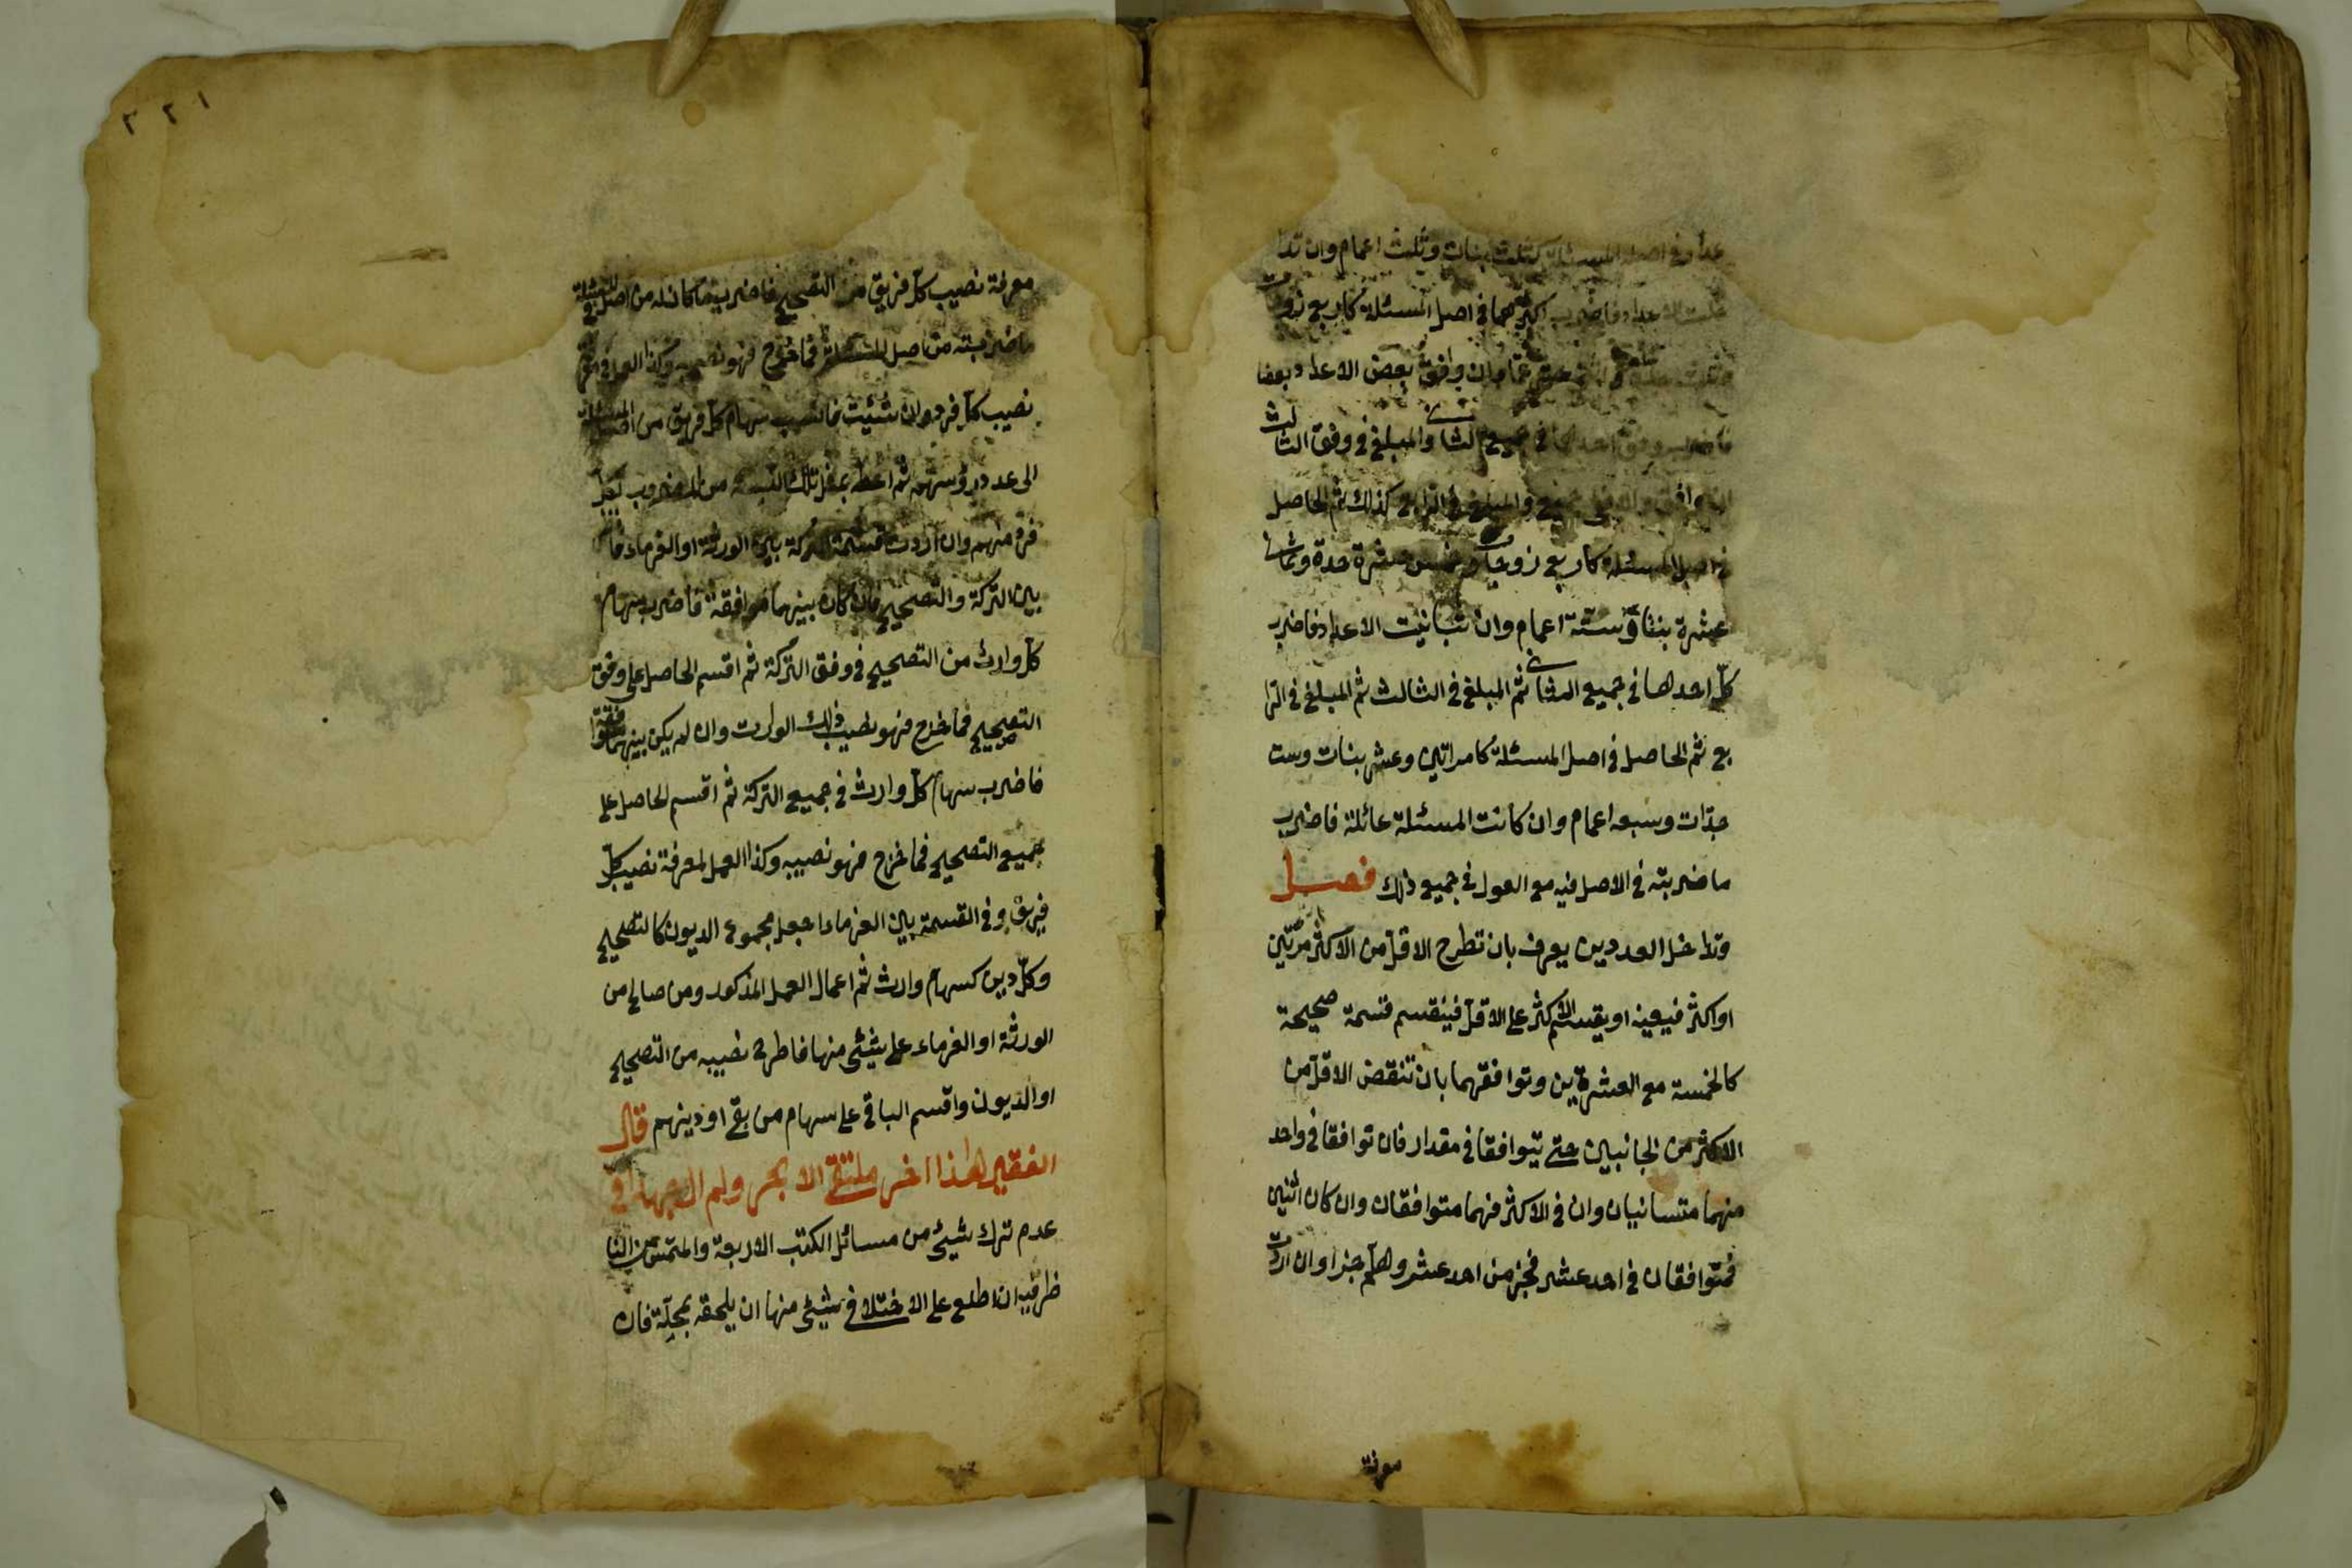 عداد في اصل المسئلة كثلث بنات وثلث اعمام وان تدا
خلت الاعداد فاضرب اكثرهما في اصل المسئلة كاربع زوجات
عشر عما وان وافق بعض الاعداد بعضا
فاضرب وفق احدهما في جميع الثاني والمبلغ في وفق الثالث
ان وافق والا ففي جميعه والمبلغ في الرابع كذلك ثم الحاصل
في اصل المسئلة كاربع زوجات وخمس عشرة جدة وثماني
عشرة بنتا وستة اعمام وان تباينت الاعداد فاضرب
كل احدها في جميع الثاني ثم المبلغ في الثالث ثم المبلغ في الرا
بع ثم الحاصل في اصل المسئلة كامراتين وعشر بنات وست
جدات وسبعه اعمام وان كانت المسئلة عائلة فاضرب
ما ضربته في الاصل فيه مع العول في جميع ذلك فصل
وتداخل العددين يعرف بان تطرح الاقل من الاكثر مرتين
او اكثر فيفنيه او يقسم الاكثر على الاقل فينقسم قسمة صحيحة
كالخمسة مع العشرين وتوافقهما بان تنقص الاقل من
الاكثر من الجانبين حتى يتوافقا في مقدار فان توافقا في واحد
منهما متباينان وان في الاكثر فهما متوافقان وان كان اثنين
فمتوافقان في احد عشر فجزء من احد عشر وهلم جرا وان اردت
معرفة
٢٢١
معرفة نصيب كل فريق من التصحيح فاضرب ما كان له من اصل المسئلة
ما ضربته من اصل المسئلة فما خرج فهو نصيبه وكذا العمل في معرفة
نصيب كل فرد وان شئت فانسب سهام كل فريق من اصل المسئلة
الى عدد رؤسهم ثم اعط بمثل تلك النسبة من المضروب لكل
فرد منهم وان اردت قسمة التركة بين الورثة او الغرماء
بين التركة والتصحيح فان كان بينهما موافقة فاضرب سهام
كل وارث من التصحيح في وفق التركة ثم اقسم الحاصل على وفق
التصحيح فما خرج فهو نصيب ذلك الوارث وان لم يكن بينهما موافقة
فاضرب سهام كل وارث في جميع التركة ثم اقسم الحاصل على
جميع التصحيح فما خرج فهو نصيبه وكذا العمل لمعرفة نصيب كل
فريق وفي القسمة بين الغرماء اجعل مجموع الديون كالتصحيح
وكل دين كسهام وارث ثم اعمال العمل المذكور ومن صالح من
الورثة او الغرماء على شيئ منها فاطرح نصيبه من التصحيح
او الديون واقسم الباقي على سهام من بقي او دينهم قال
الفقير هذا اخر ملتقى الابحر ولم ال جهدا في
عدم ترك شيئ من مسائل الكتب الاربعة والملتمس من النا
ظر فيه ان اطلع على الاختلاف في شيئ منها ان يلحقه بمحله فان